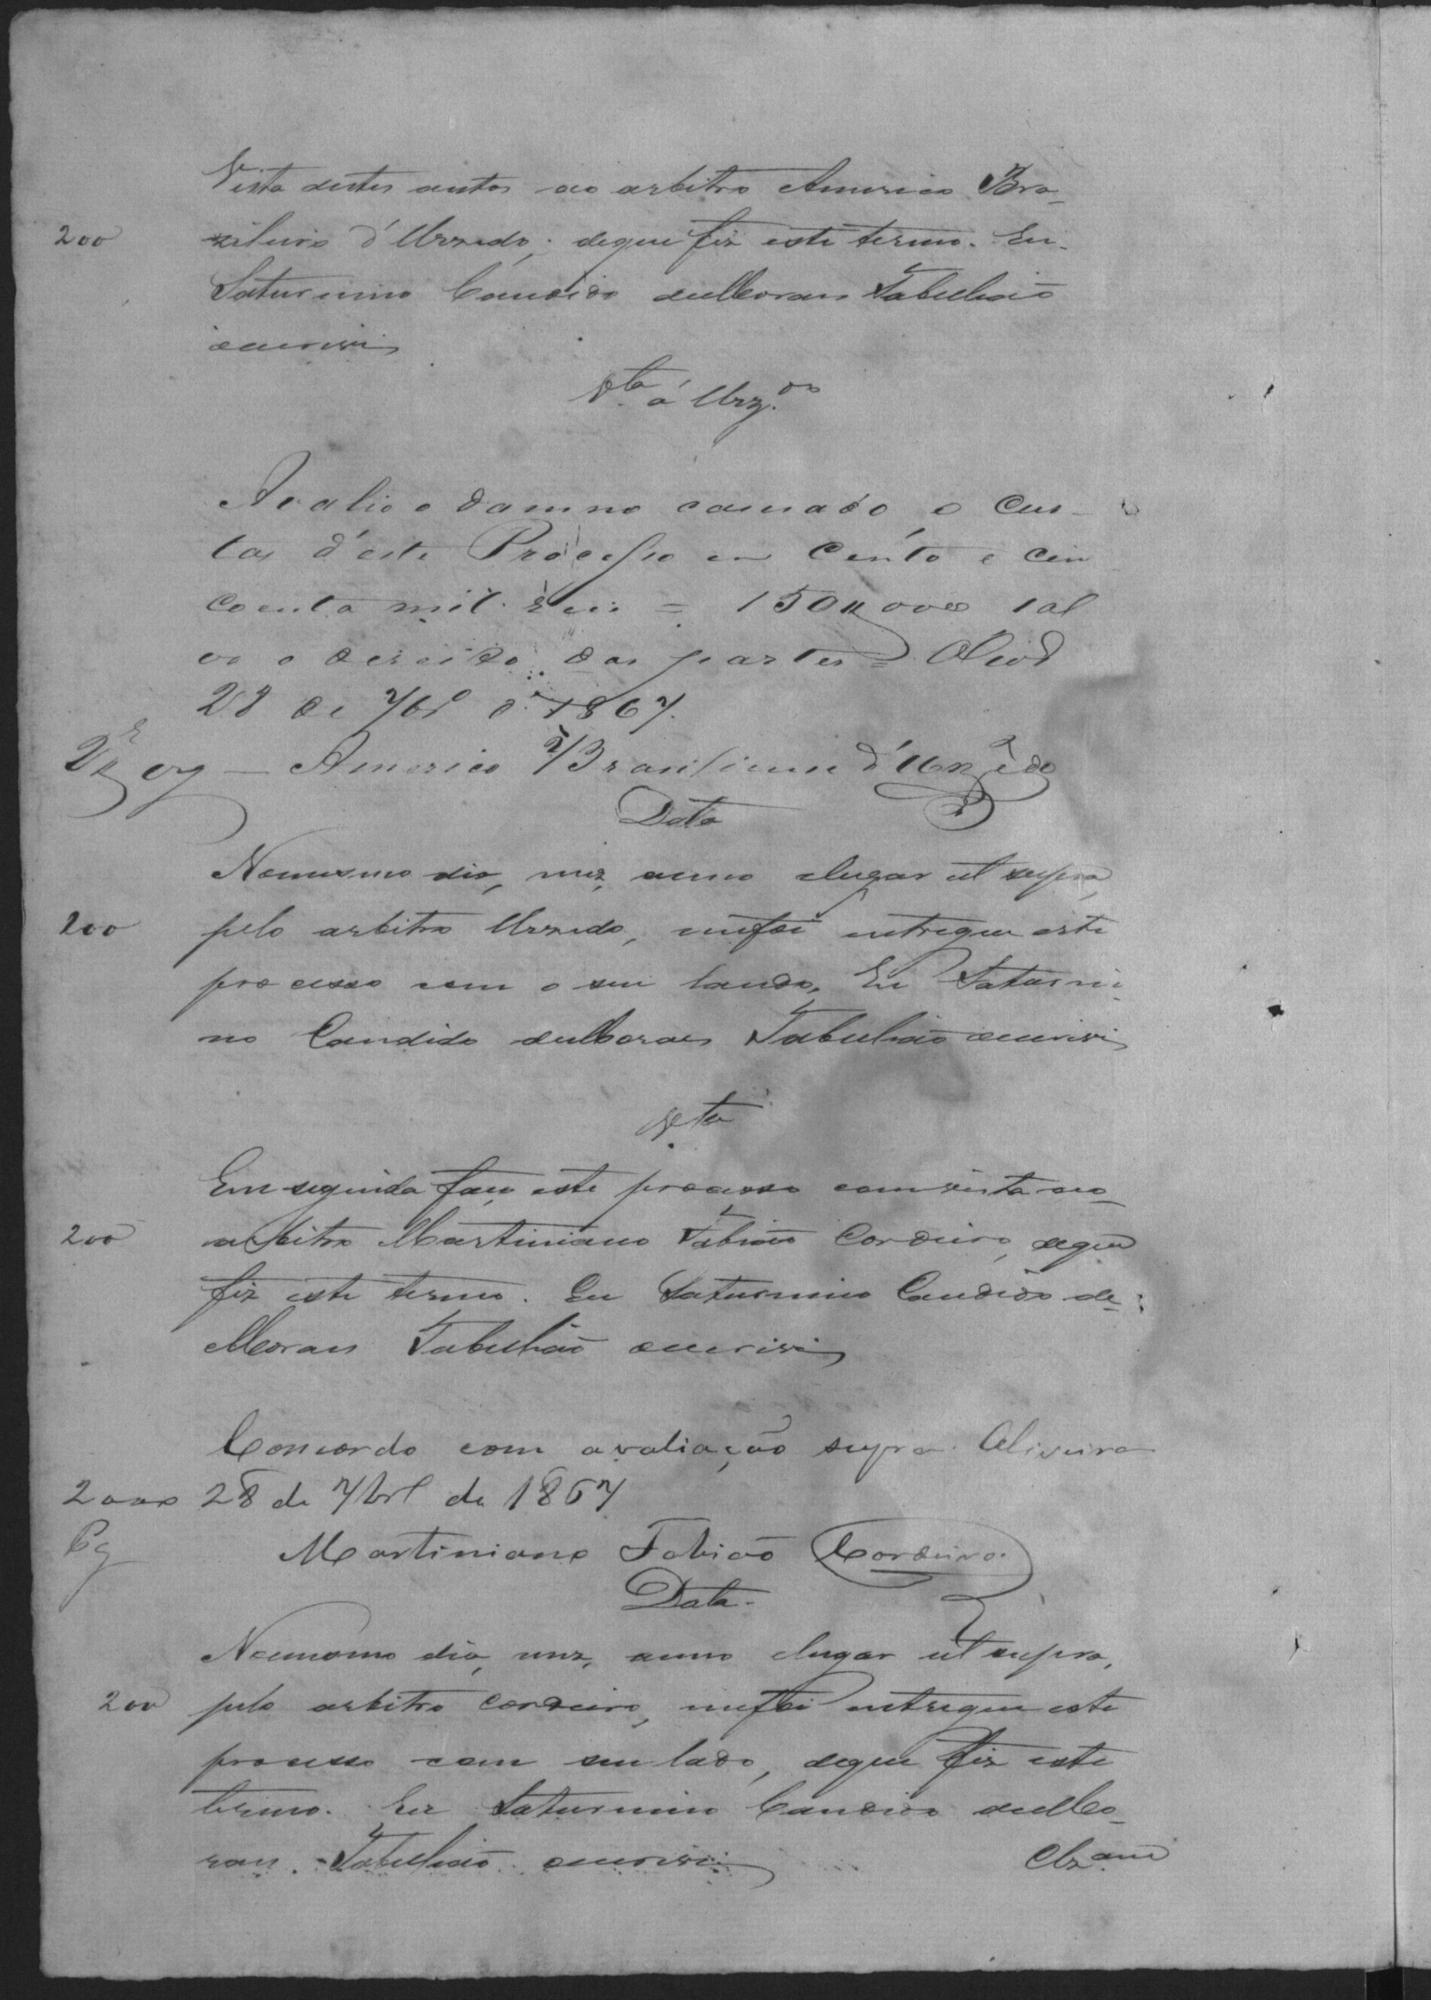 Vista destes autos ao arbitro Americo Bra-
200 zileiro d'Urzedo; deque fiz este termo. Eu
Saturnino Candido deMoraes Tabelião
escrivi
Vta á Urzdo
Avalio o damno causado, e Cus-
tas d'este Processo em Cento e cin
coenta mil reis = 150$000 sal
vo o direito das partes = Olivrª
28 de 7brº d 1867.
Americo Brasileiro d'Urzêdo
Data
Nomesmo dia, mez, anno elugar ut supra,
200 pelo arbitro Urzedo, mefoi entregue este
processo com o seu laudo. Eu Saturni-
no Candido deMoraes Tabelião escrivi
Vta
Em seguida faço este processo comvista ao
200 arbitro Martiniano Fabião Cordeiro, deque
fiz este termo. Eu Saturnino Candido de
Moraes Tabelião escrivi
Concordo com avaliação supra. Oliveira
2000 28 de 7brº de 1867
Pg
Martiniano Fabião Cordeiro.
Data.
Nomesmo dia, mez, anno elugar ut supra,
200 pelo arbitro Cordeiro, mefoi entregue este
processo com seu lado, deque fiz este
termo. Eu Saturnino Candido deMo-
raes. Tabelião escrivi